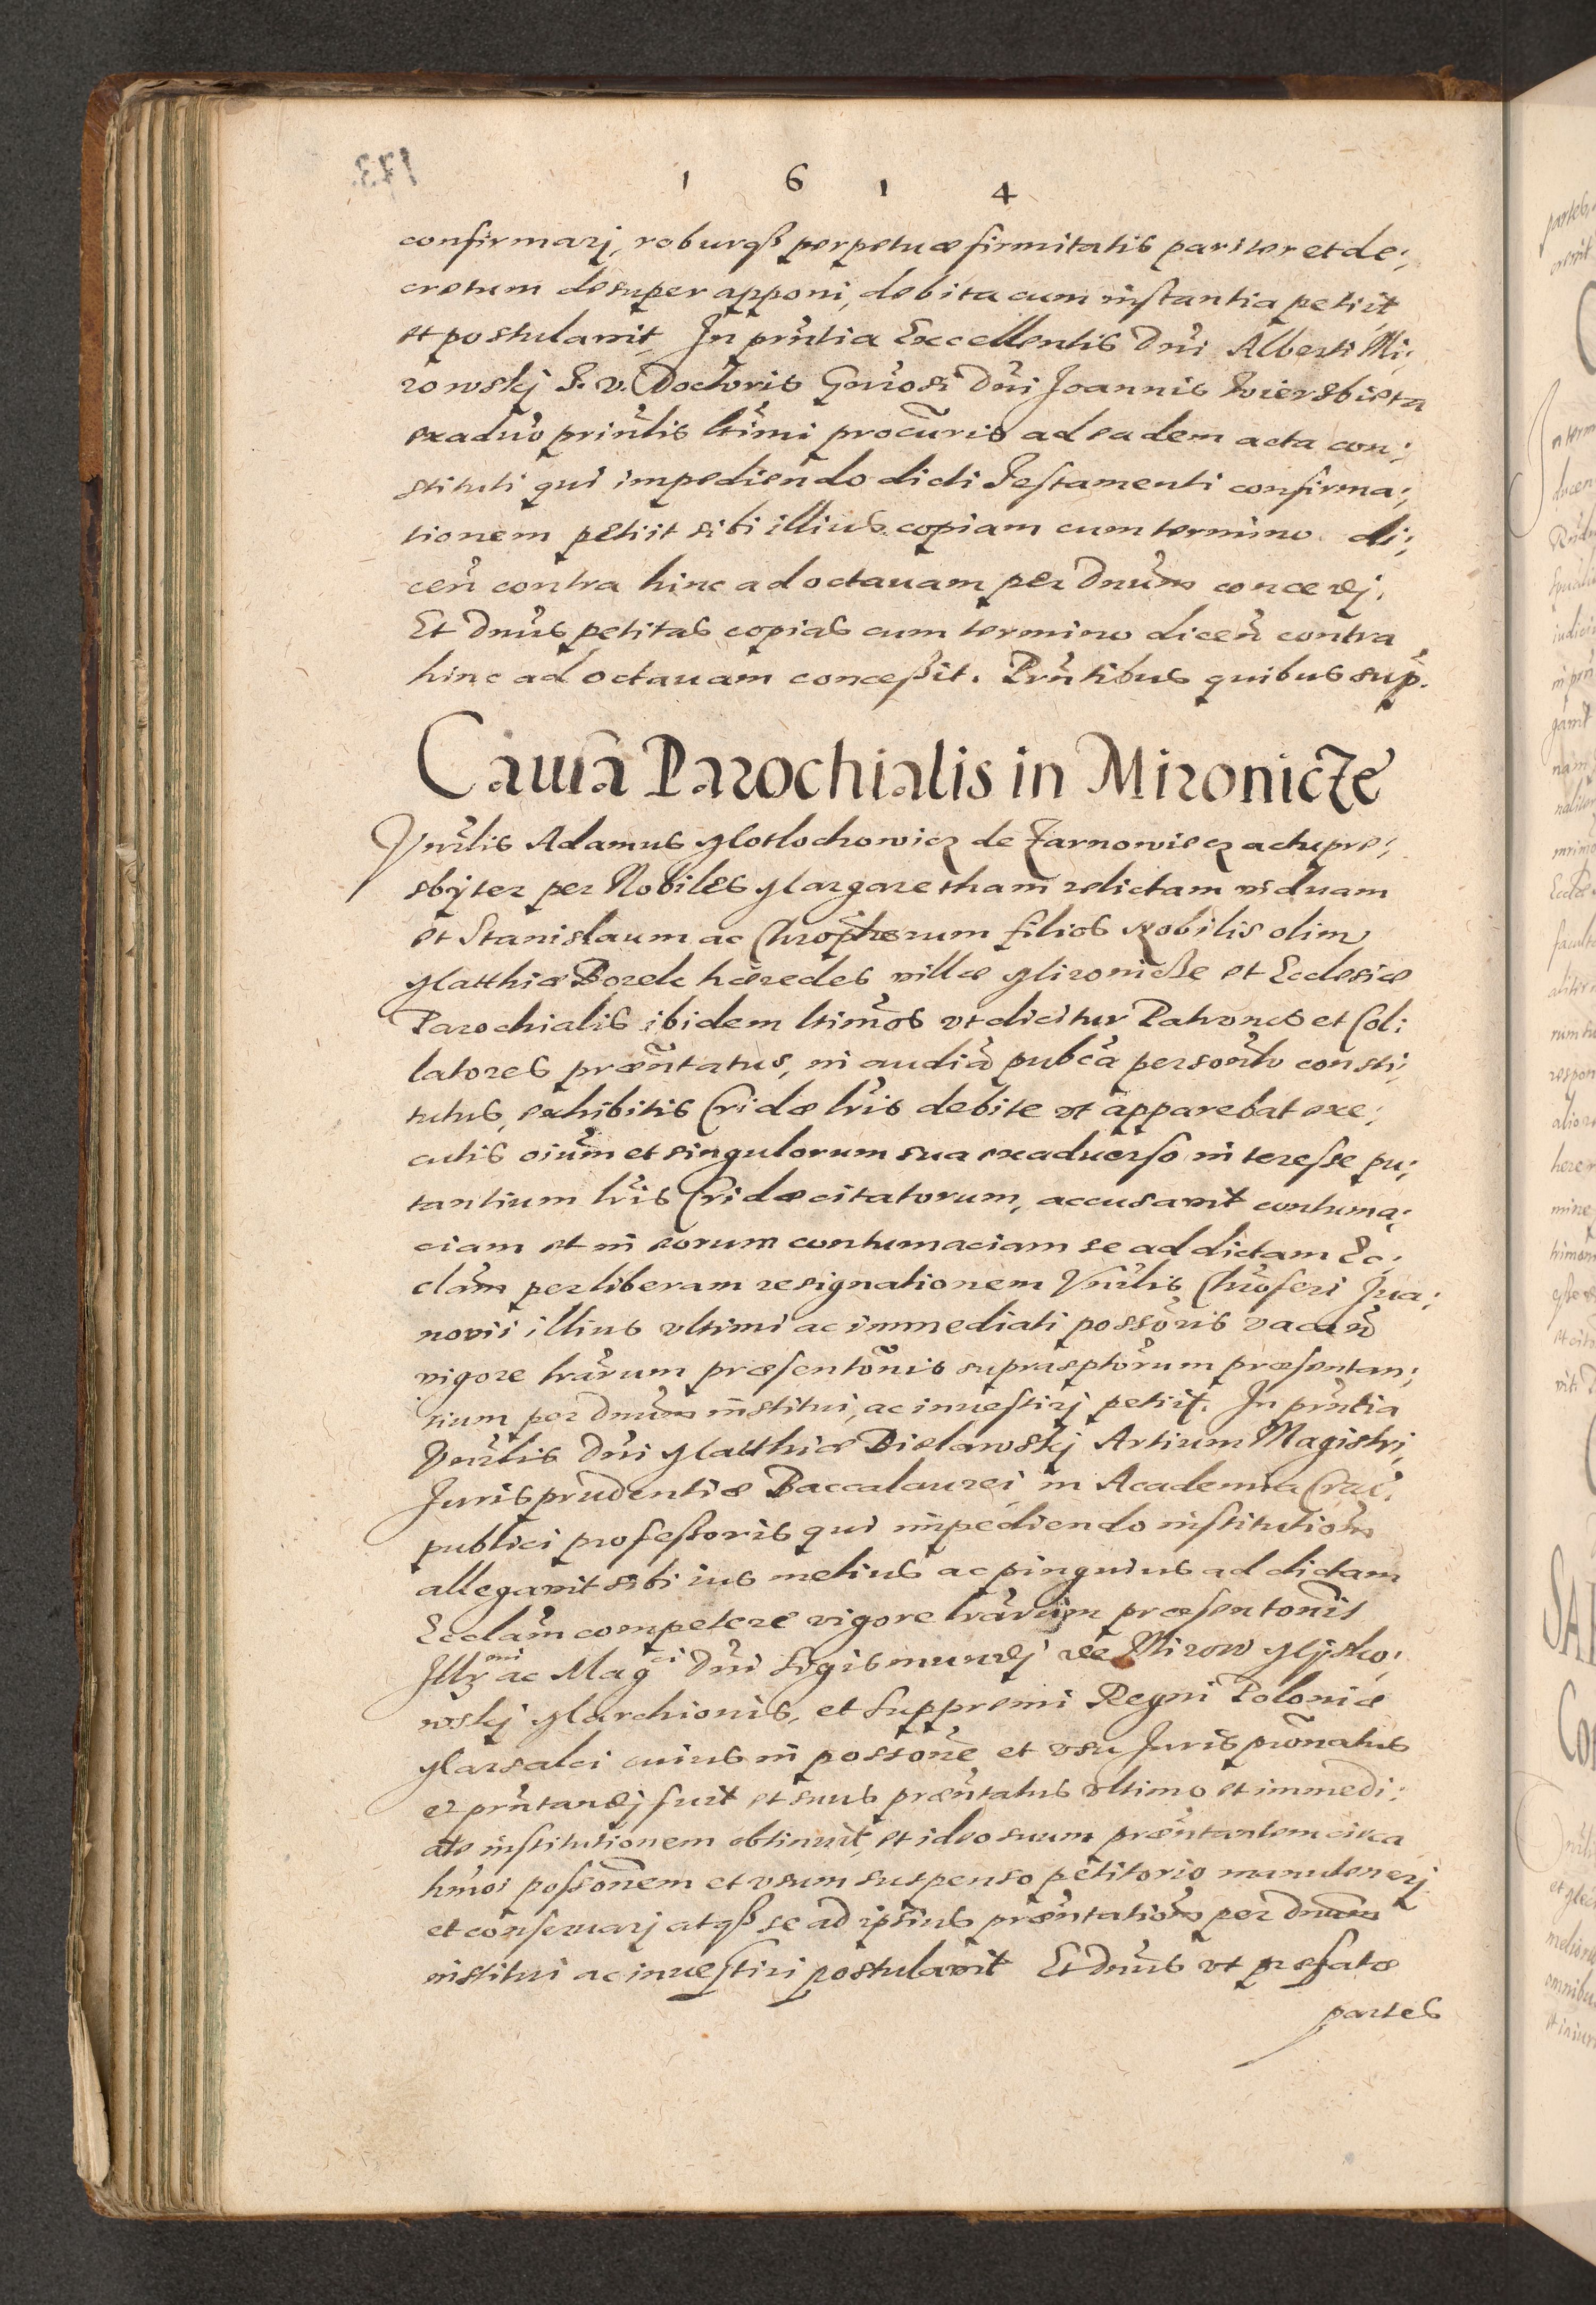 173.
1 6 1 4
confirmarj, roburqß perpetuæ firmitatis pariter et de:
cretum desuper apponi, debita cum instantia petijt
et postulavit, In pñtia Excellentis Dñi Alberti Mi:
rowskj J. V. Doctoris Gñrosi Dñi Joannis
exadũo prinĉlis ltĩmi procũris ad eadem acta con:
stituti qui impediendo dicti Testamenti confirma:
tionem petiit sibi illius copiam cum termino di:
ceñ contra hinc ad octauam per Dnũm concedj.
Et Dnũs petitas copias cum termino diceñ contra
hinc ad octauam conceßit. Prñtibus quibus sup̃.
Causa Parochialis in Mironicze
Vnrĩlis Adamus Motlochowicz de Zarnowiecz actu pre:
sbyter per Nobiles Margaretham relictam viduam
et Stanislaum ac Chrõpherum filios Nobilis olim
Matthiæ Borek hæredes villæ Mironicze et Ecclesiæ
Parochialis ibidem ltimõs vt dicitur Patronos et Col:
latores præñtatus, in audiã pubcã persoñlr consti:
tutus, exhibitis Cridæ lrĩs debite vt apparebat exe:
cutis oiũm et singulorum sua exaduerso interesse pu:
tantium lrĩs Cridæ citatorum, accusavit contuma:
ciam et in eorum contumaciam se ad dictam Ec:
clãm per liberam resignationem Vnrĩlis Chrõferi Jua:
novii illius vltimi ac immediati possõris vacañ
vigore lrãrum præsentõnis suprascptõrum præsentan:
tium per Dnũm institui, ac inuestirj petiit. In prñtia
Vnrĩlis Dñi Matthiæ Bielawskj Artium Magistri,
Jurisprudentiæ Baccalaurei in Academia Crac̃.
publici profeßoris qui impediendo institutiõm
allegavit sibi ius melius ac pinguius ad dictam
Ecclãm competere vigore lrãrum præsentõnis
Illr̃mi ac Magci Dñi Sigismundj de Mirow Mysko:
wskj Marchionis, et Suppremi Regni Poloniæ
Marsalci cuius in possõne et vsu Juris prõnatus
et prñtandj fuit et suus præñtatus vltimo et immedi:
ate institutionem obtinuit, et ideo suum præñtantem circa
hmõi poßõnem et vsum suspenso petitorio manutenerj
et conseruarj atqß se ad ipsius præñtatiõm per Dnũm
institui ac inuestiri postulavit Et Dnũs vt præfatæ
partes